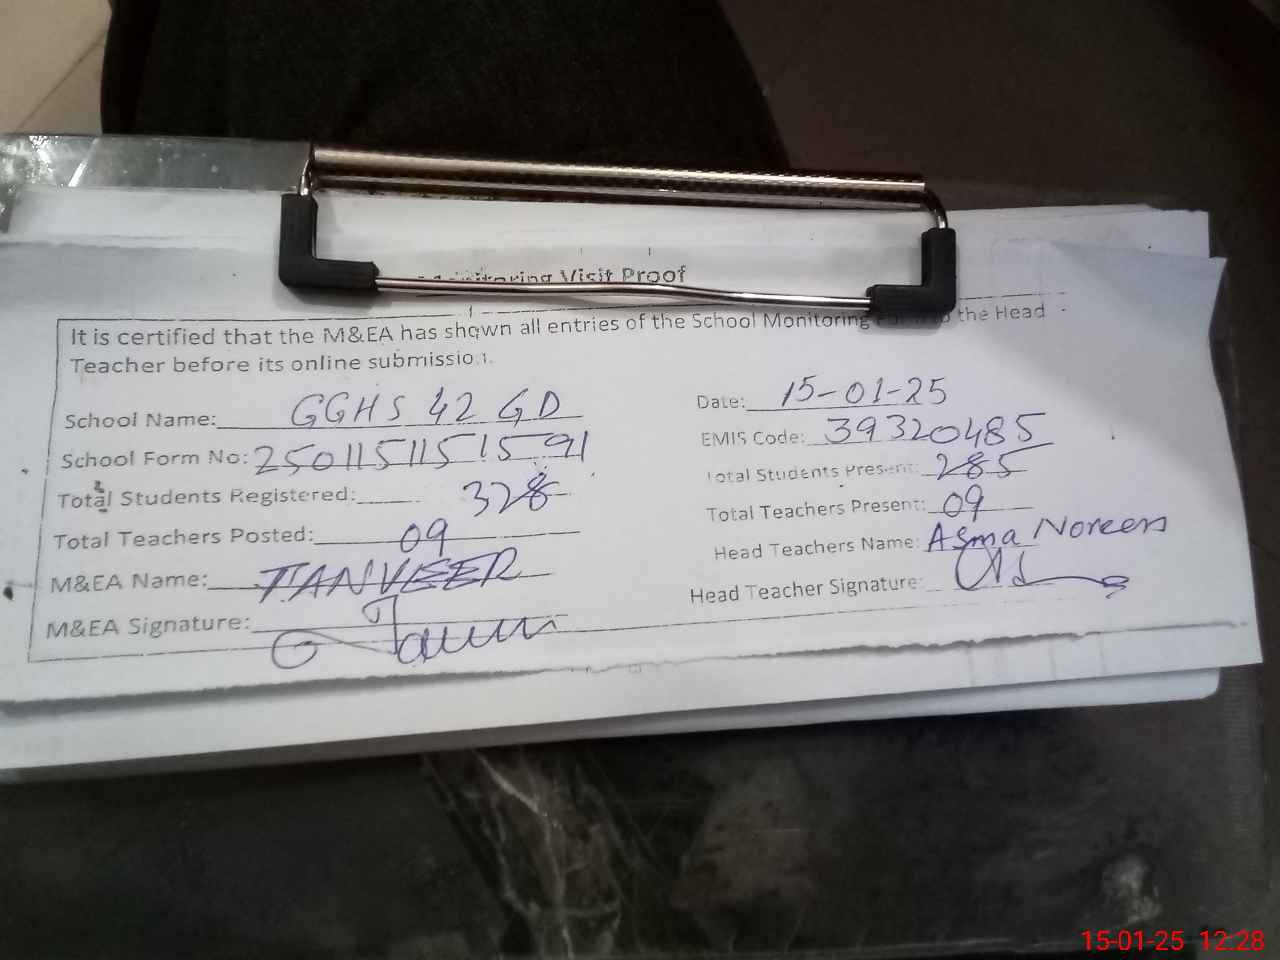 Monitoring Visit Proof
It is certified that the M&EA has shown all entries of the School Monitoring Form to the Head
Teacher before its online submission.
School Name: GGHS 42 GD Date: 15-01-25
School Form No: 2501151151591 EMIS Code: 39320485
Total Students Registered: 328 Total Students Present: 285
Total Teachers Posted: 09 Total Teachers Present: 09
M&EA Name: TANVEER Head Teachers Name: Asma Noreen
M&EA Signature: Head Teacher Signature:
15-01-25 12:28